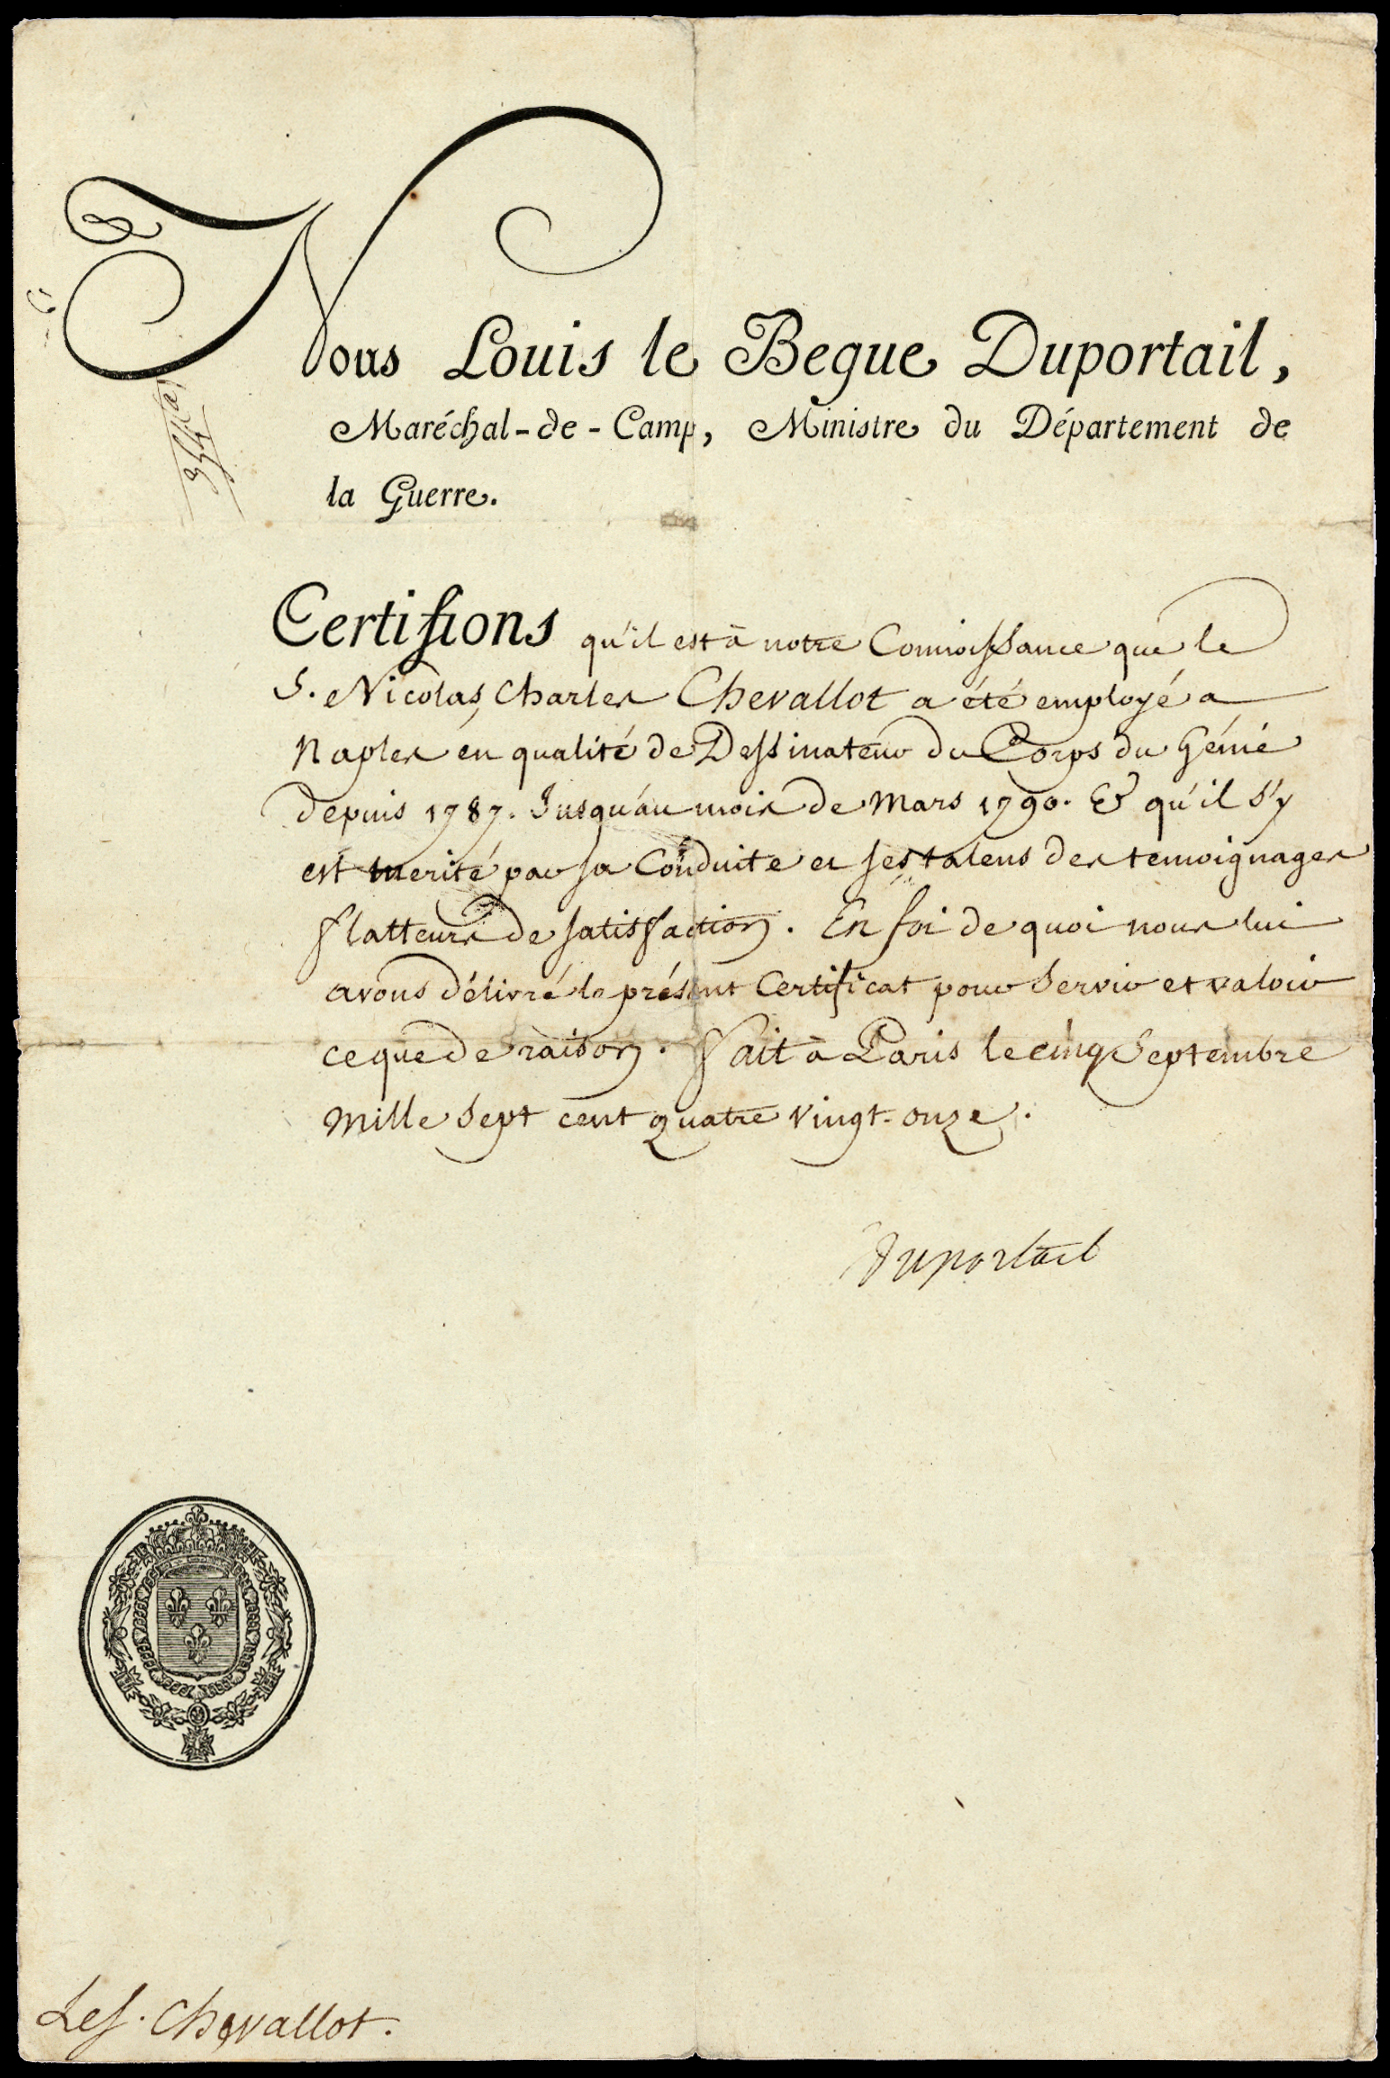 Nous Louis le Begue Duportail,
Maréchal-de-Camp, Ministre du Département de
la Guerre.
Certifions qu'il est à notre Connoissance que le
S. Nicolas Charles Chevallot a été employé a
Naples en qualité de Dessinateur du Corps du Génie
depuis 1787. Jusqu'au mois de Mars 1790. & qu'il s'y
est merité par sa Conduite et ses talens des temoignages
flatteurs de satisfaction. En foi de quoi nous lui
avons délivré le présent Certificat pour Servir et valoir
ce que de raison. Fait à Paris le cinq Septembre
Mille Sept cent quatre vingt-onze.
Duportail
Le S. Chevallot.